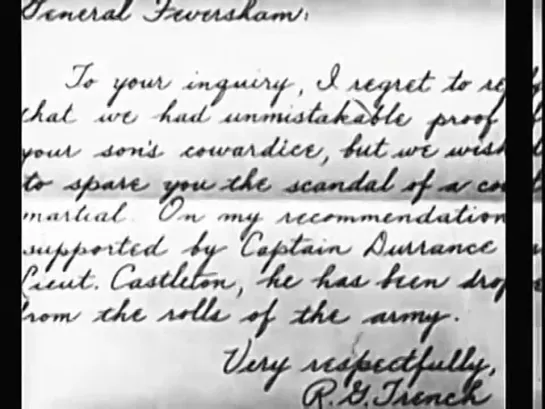 General Feversham:
To your inquiry, I regret to
that we had unmistakable proof
your son's cowardice, but we wish
to spare you the scandal of a
martial. On my recommendation
supported by Captain Durrance
Lieut. Castleton, he has been
from the rolls of the army.
Very respectfully,
R. G. Trench